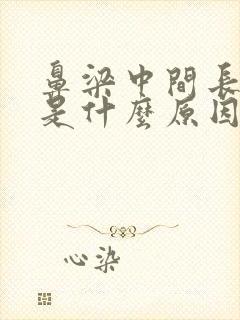 鼻梁中間長
是什麼原因
心染